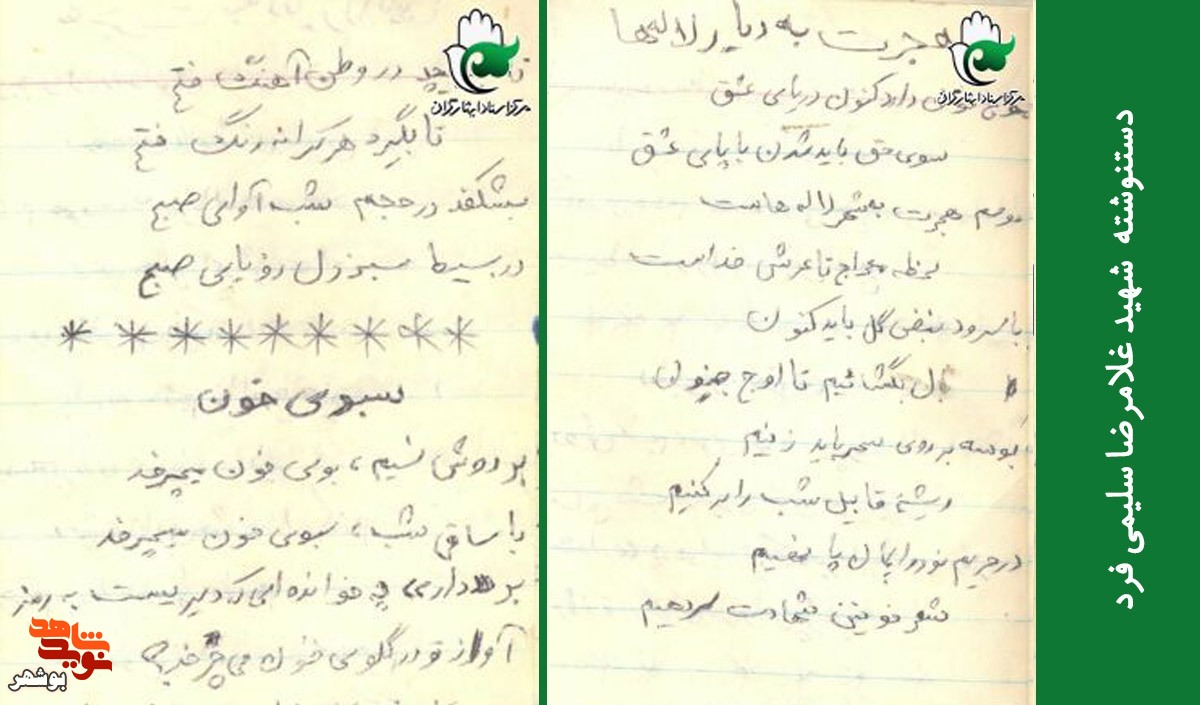 دستنوشته شهید غلامرضا سلیمی فرد
هجرت به دیار لاله‌ها
دارد کنون دریای عشق
سوی حق باید شدن با پای عشق
موسم هجرت به شهر لاله هاست
لحظه معراج تا عرش خداست
با سرود نبض گل باید کنون
بال بگشائیم تا اوج جنون
بوسه بر روی سحر باید زنیم
ریشهٔ قابیل شب را بر کنیم
در حریم نور و ایمان پا نهیم
شعر خونین شهادت سر دهیم
مرکز اسناد ایثارگران
در وطن آهنگ فتح
تا بگیرد هر کرانه رنگ فتح
بشکفد در حجم شب آوای صبح
در بسیط سبز دل رؤیای صبح
* * * * * * * * *
سبوی خون
بر دوش نسیم، بوی خون میچرخد
با ساقی شب، سبوی خون میچرخد
بر دار، چه خوانده‌ای که دیریست به رمز
آواز تو در گلوی خون می چرخد؟
مرکز اسناد ایثارگران
نوید شاهد
بوشهر